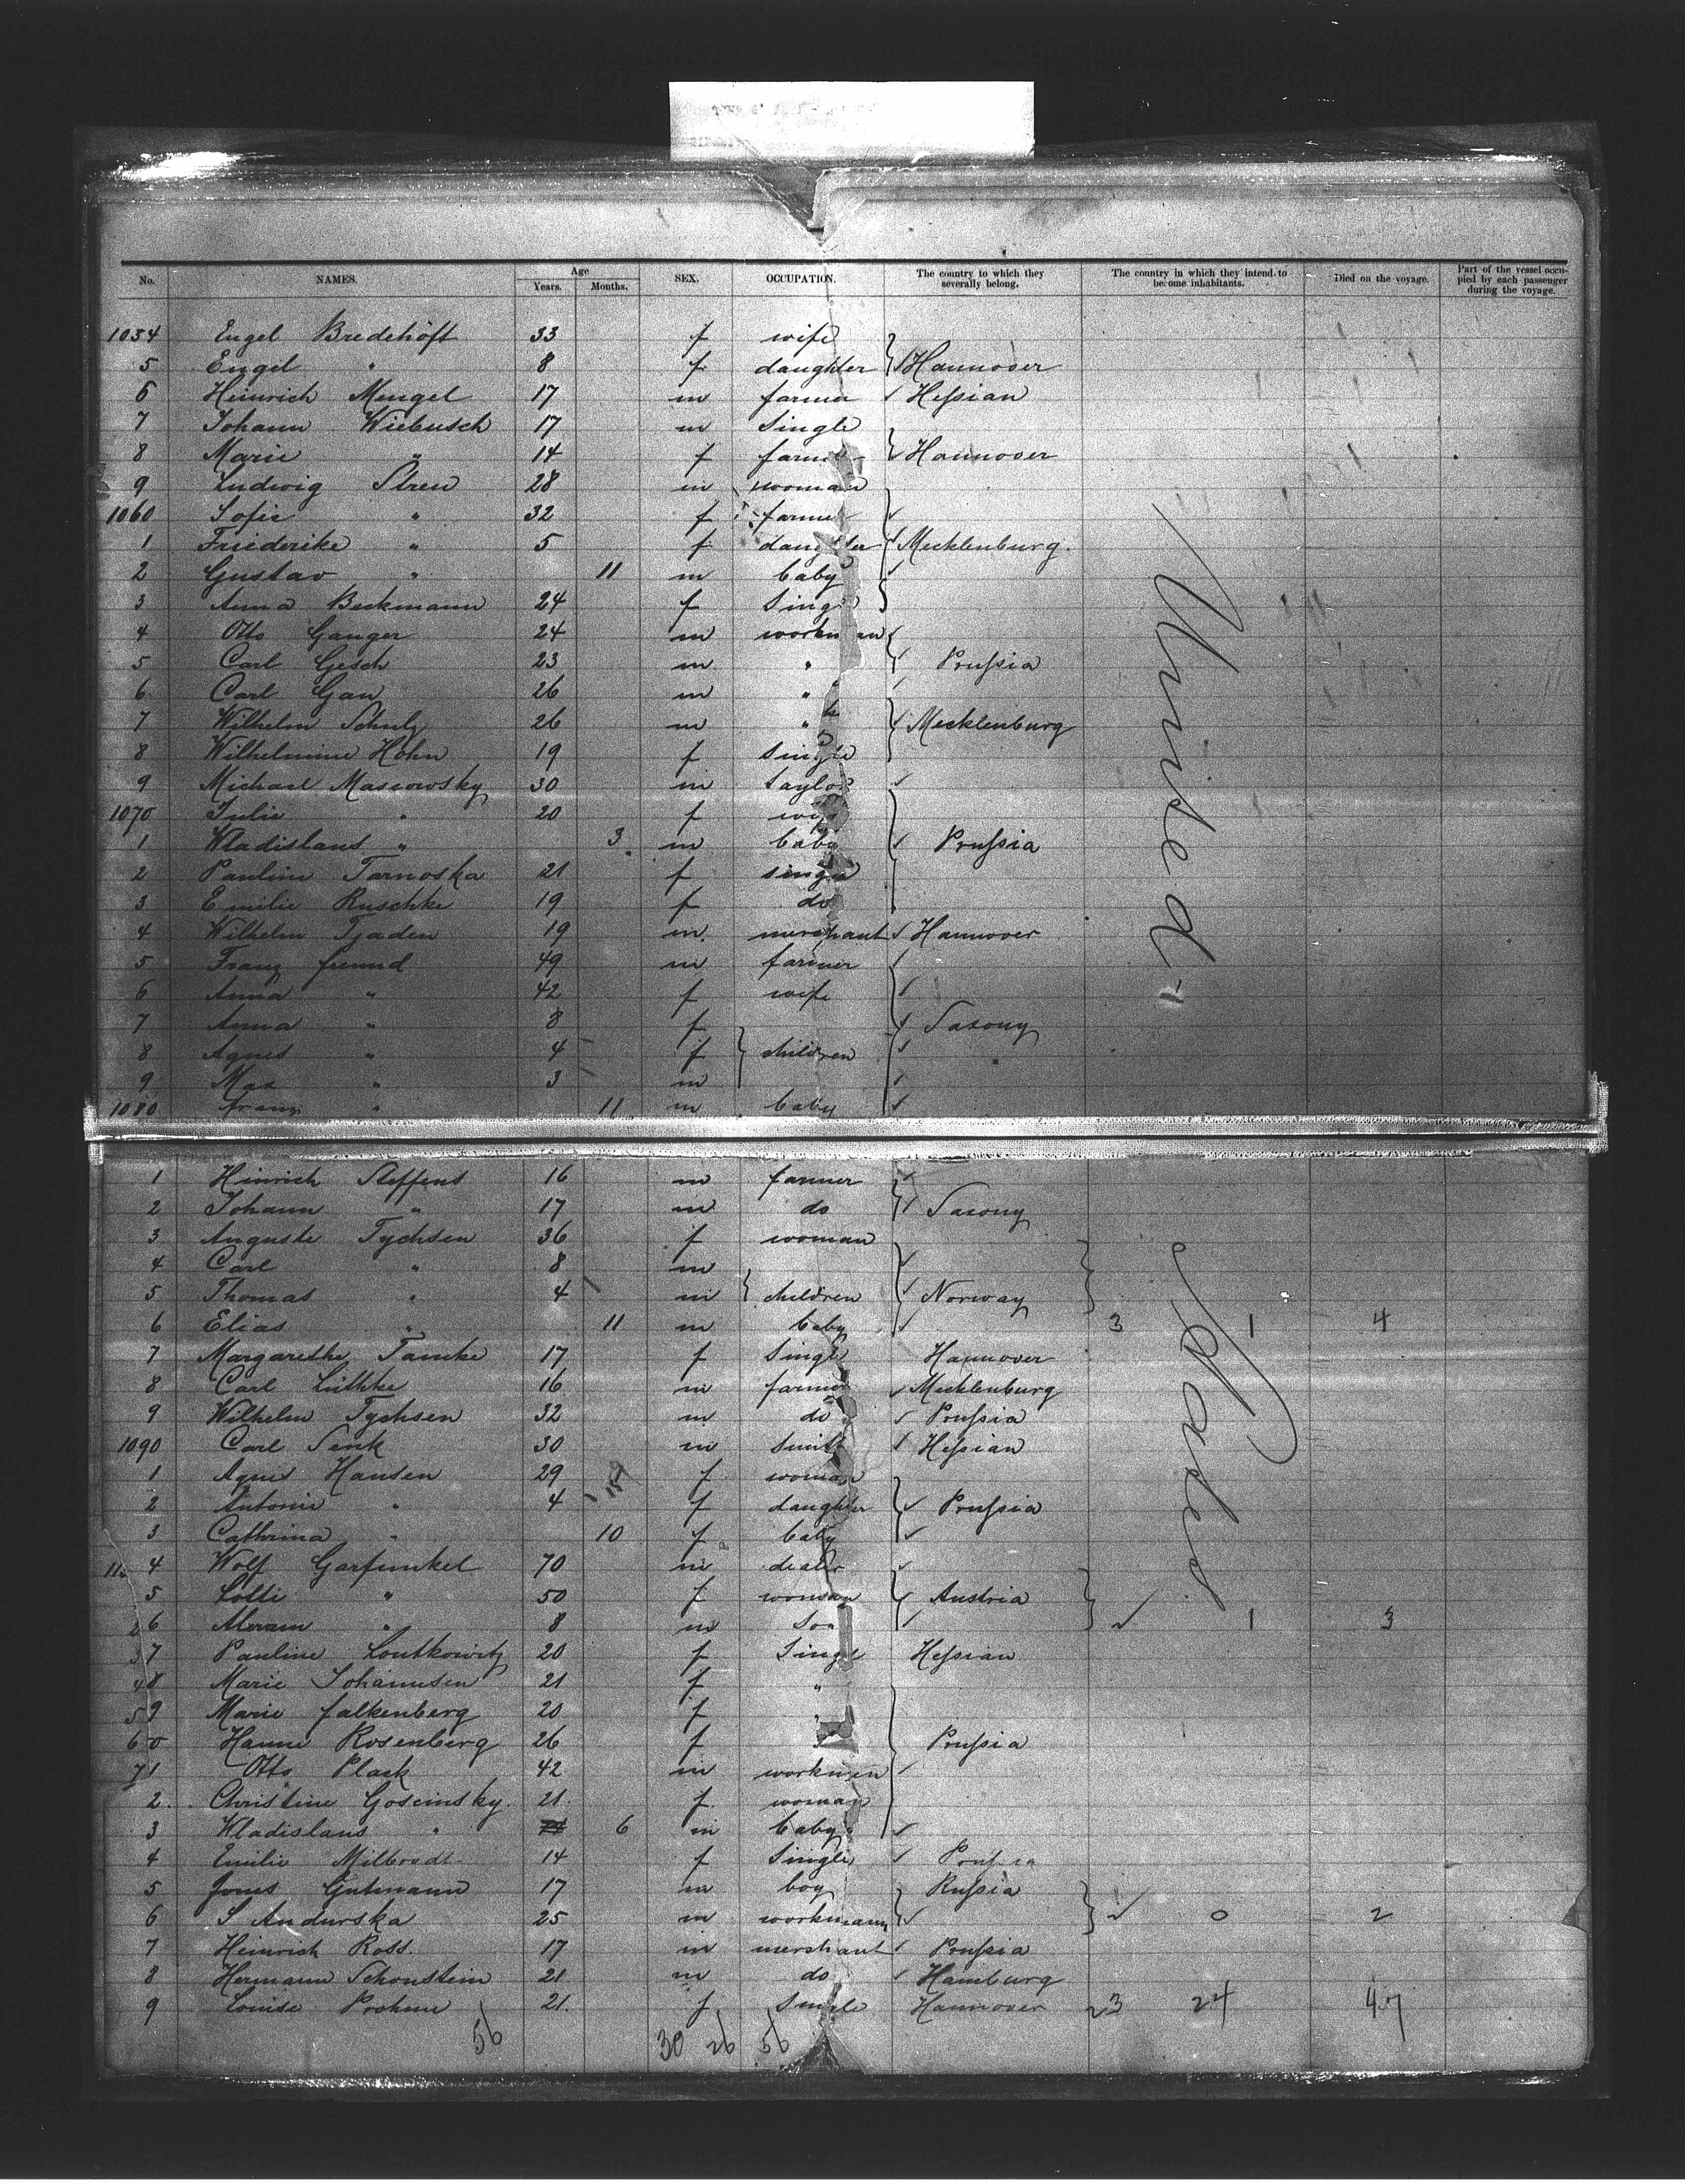 No. NAMES. Age Years. Months. SEX. OCCUPATION. The country to which they severally belong. The country in which they intend to become inhabitants. Died on the voyage. Part of the vessel occupied by each passenger during the voyage.
1054 Engel Bredehöft 33 f wife
5 Engel " 8 f daughter Hannover
6 Heinrich Mengel 17 m farmer Hessian
7 Johann Wiebusch 17 m Single
8 Marie " 14 f farmer Hannover
9 Ludwig Streu 28 m woman
1060 Sofie " 32 f farmer
1 Friederike " 5 f daughter Mecklenburg.
2 Gustav " 11 m baby
3 Anna Beckmann 24 f Single
4 Otto Ganger 24 m workman
5 Carl Gesch 23 m " Prussia
6 Carl Gau 26 m "
7 Wilhelm Schulz 26 m " Mecklenburg
8 Wilhelmine Höhn 19 f single
9 Michael Mascowsky 30 m taylor
1070 Julie " 20 f wife
1 Wladislaus " 3 m baby Prussia
2 Pauline Tarnoska 21 f single
3 Emilie Ruschke 19 f do
4 Wilhelm Tjaden 19 m merchant Hannover
5 Franz Freund 49 m farmer
6 Anna " 42 f wife
7 Anna " 8 f Saxony
8 Agnes " 4 f children
9 Max " 3 m
1080 Franz " 11 m baby
United
1 Hinrich Steffens 16 m farmer
2 Johann " 17 m do Saxony
3 Auguste Tychsen 36 f woman
4 Carl " 8 m
5 Thomas " 4 m children Norway
6 Elias " 11 m baby 3 1 4
7 Margarethe Tamke 17 f Single Hannover
8 Carl Lüthke 16 m farmer Mecklenburg
9 Wilhelm Tychsen 32 m do Prussia
1090 Carl Senk 30 m Smith Hessian
1 Agnes Hansen 29 159 f woman
2 Antonie " 4 f daughter Prussia
3 Cathrina " 10 f baby
4 Wolf Garfunkel 70 m dealer
5 Lotti " 50 f woman Austria
6 " 8 m Son 1 3
7 Pauline Loutkowitz 20 f Single Hessian
8 Marie Johannsen 21 f "
9 Marie Falkenberg 20 f "
0 Hanne Rosenberg 26 f Prussia
1 Otto Plack 42 m workmen
2. Christine Goscinsky. 21. f woman
3 Wladislaus " 6 m baby
4 Emilie Milbrodt 14 f Single Prussia
5 Jones Gutmann 17 m boy Russia
6 S Andurska 25 m workmann 0 2
7 Heinrich Ross. 17 m merchant Prussia
8 Hermann Schonstein 21 m do Hamburg
9 Louise Prohme 21. f Single Hannover 23 24 47
States
56 30 26 56